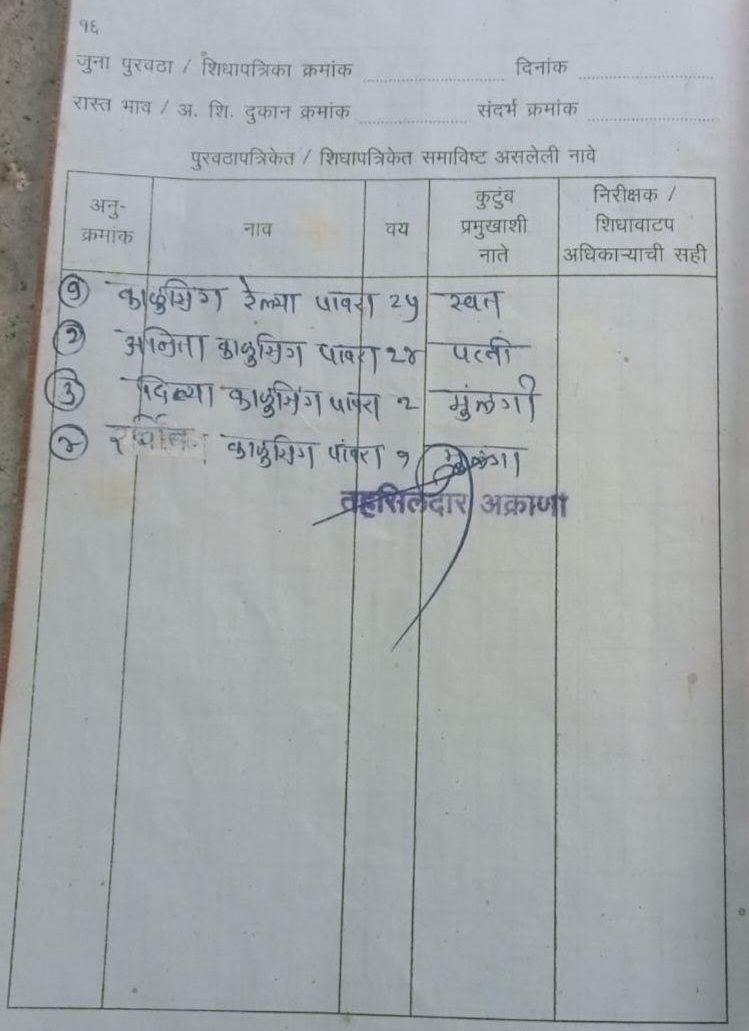 १६
जुना पुरवठा / शिधापत्रिका क्रमांक दिनांक
रास्त भाव / अ. शि. दुकान क्रमांक संदर्भ क्रमांक
पुरवठापत्रिकेत / शिधापत्रिकेत समाविष्ट असलेली नावे
अनु-क्रमांक नाव वय कुटुंब प्रमुखाशी नाते निरीक्षक / शिधावाटप अधिकाऱ्याची सही
१ काळुसिग रेल्या पावरा २५ स्वत
२ अनिता काळुसिग पावरा २४ पत्नी
३ काळुसिंग पावरा २ मुलगी
४ काळुसिग पांवरा १ मुलगा
तहसिलदार अक्राणी